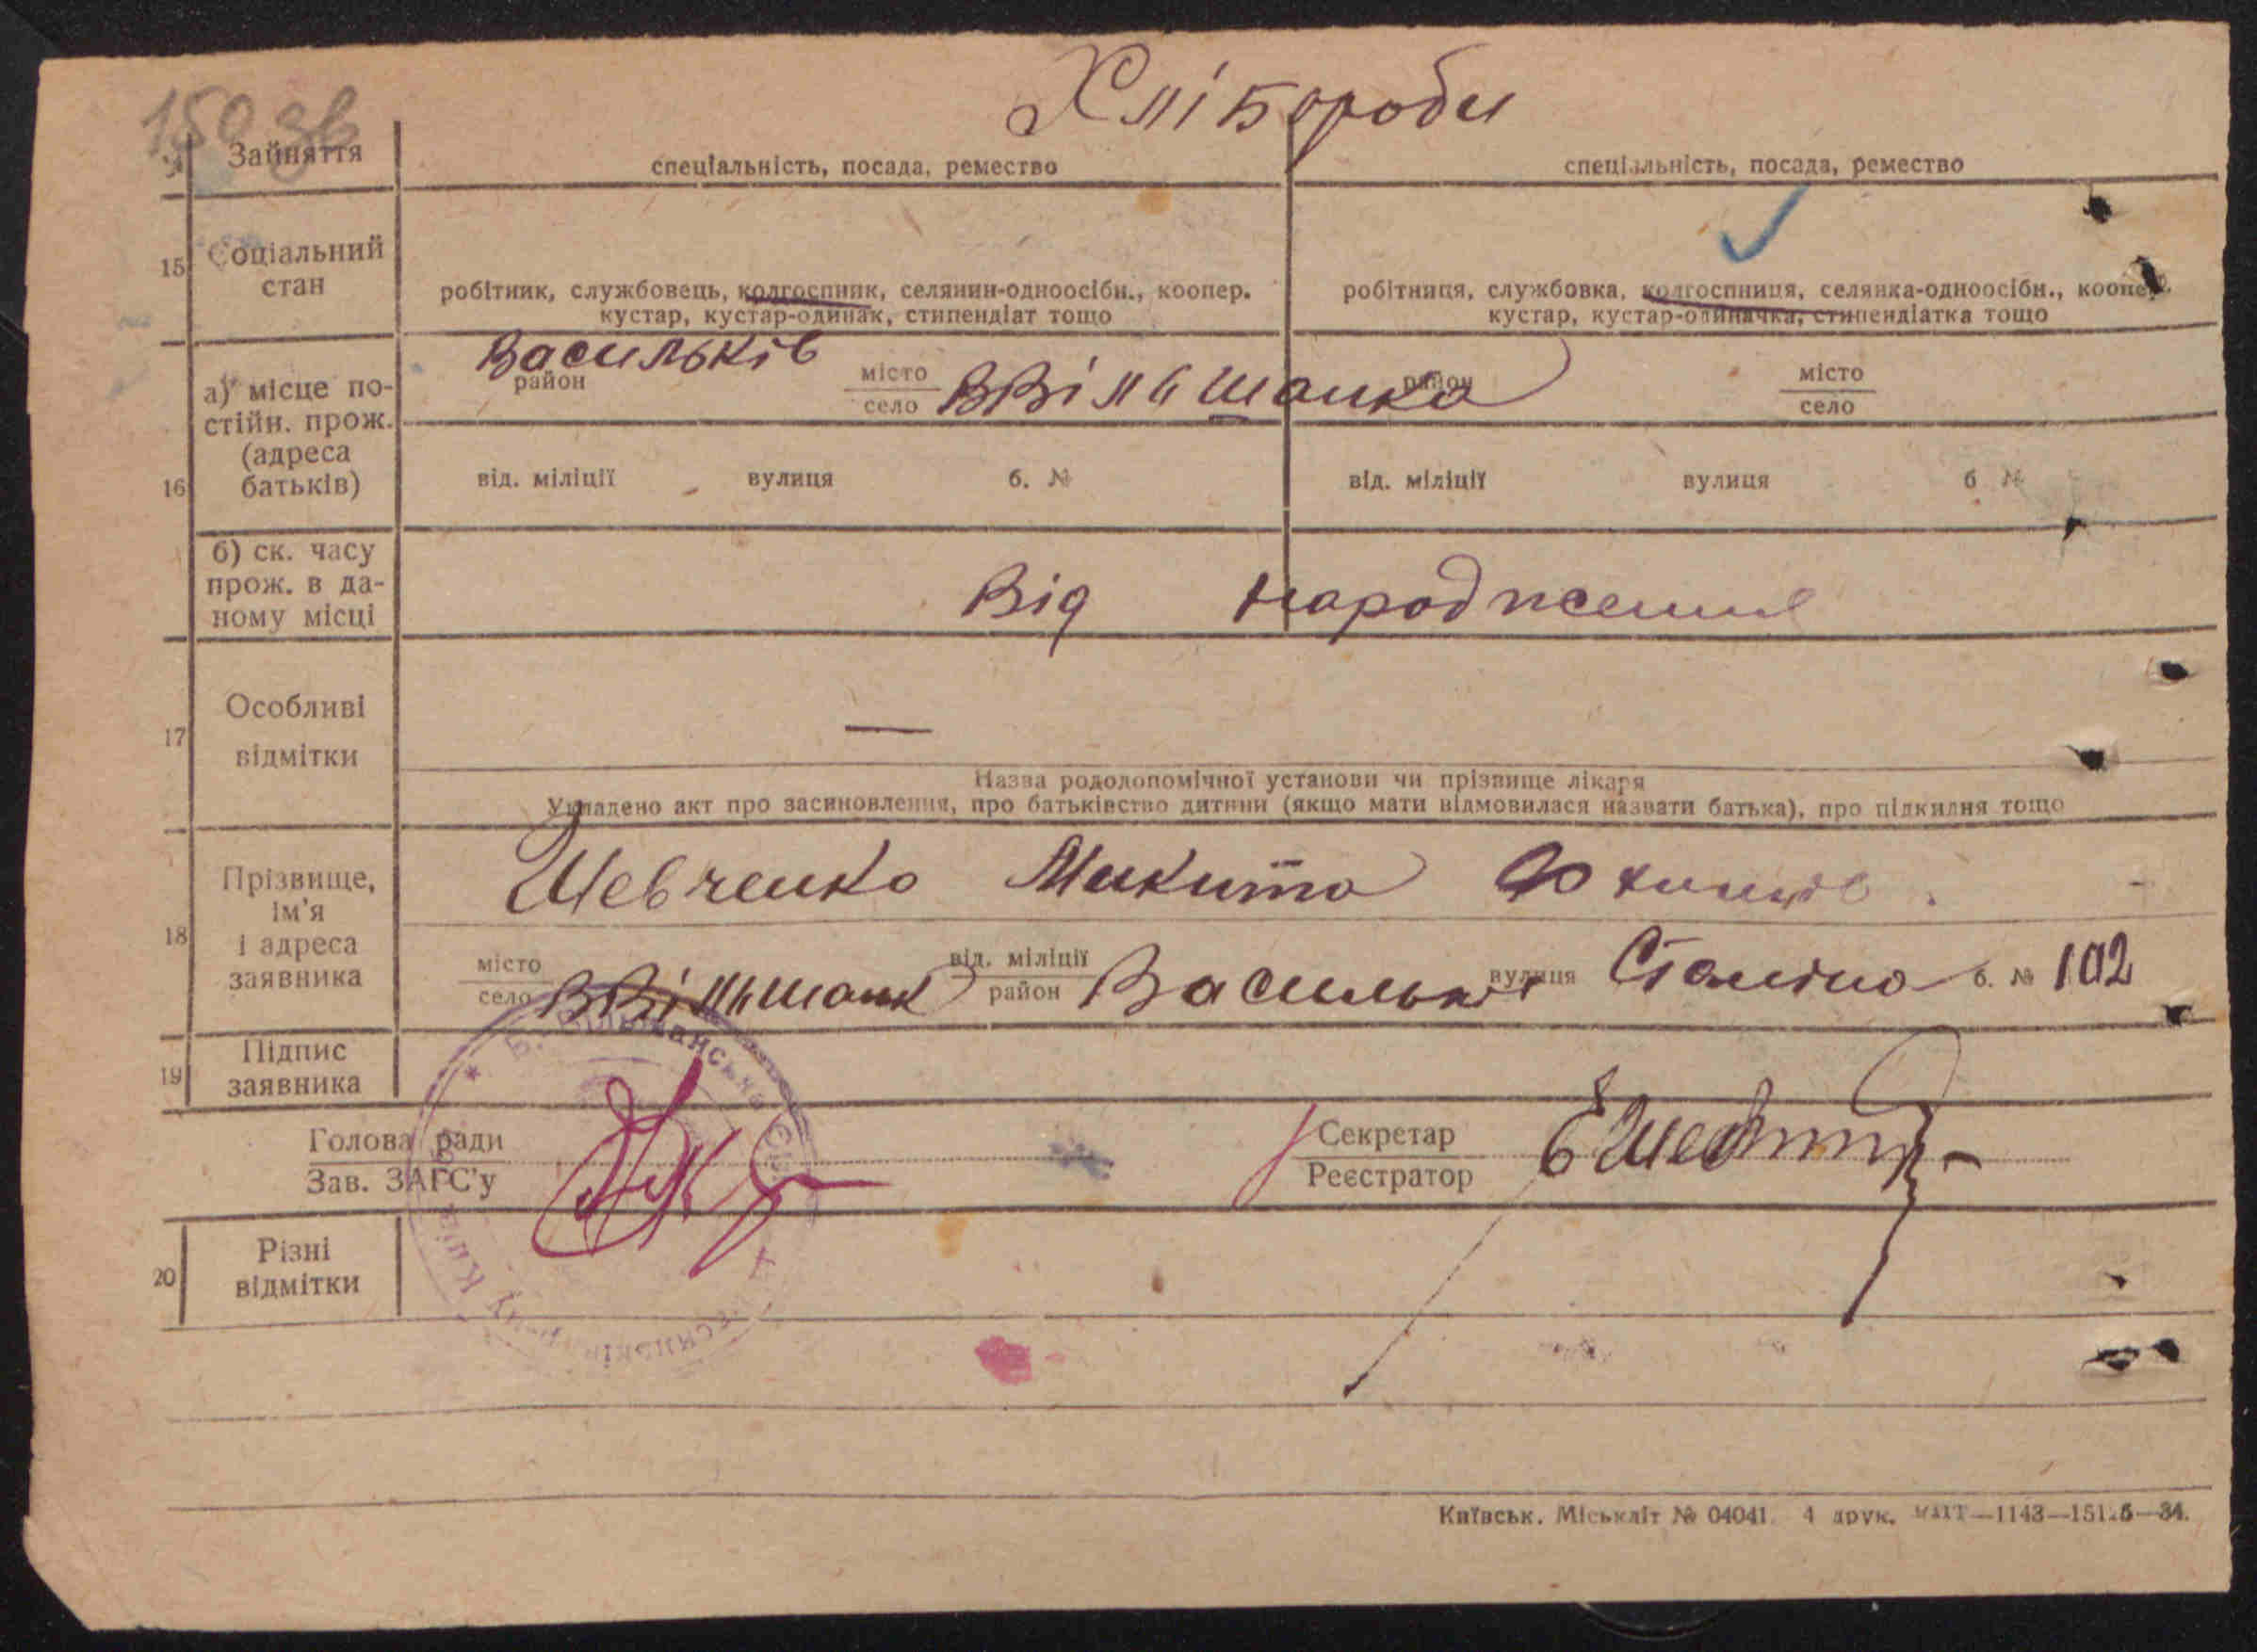 150 зв
Хлібороби
Зайняття
спеціальність, посада, ремество
спеціяльність, посада, ремество
15 Соціальний стан
робітник, службовець, колгоспник, селянин-одноосібн., коопер.
кустар, кустар-одинак, стипендіат тощо
робітниця, службовка, колгоспниця, селянка-одноосібн., коопер.
кустар, кустар-одиначка, стипендіатка тощо
16 а) місце постійн. прож. (адреса батьків)
Васильків район місто село ВВільшанка район місто село
від. міліції вулиця б. № від. міліції вулиця б №
б) ск. часу прож. в даному місці
Від народження
17 Особливі відмітки
—
Назва рододопомічної установи чи прізвище лікаря
Укладено акт про засиновлення, про батьківство дитини (якщо мати відмовилася назвати батька), про підкидня тощо
18 Прізвище, ім'я і адреса заявника
Шевченко Микита
місто село ВВільшанк від. міліції район Васильків вулиця Сталіна б. № 102
19 Підпис заявника
Голова ради
Зав. ЗАГС'у
Секретар
Реєстратор
20 Різні відмітки
Київськ. Міськліт № 04041. 4 друк.